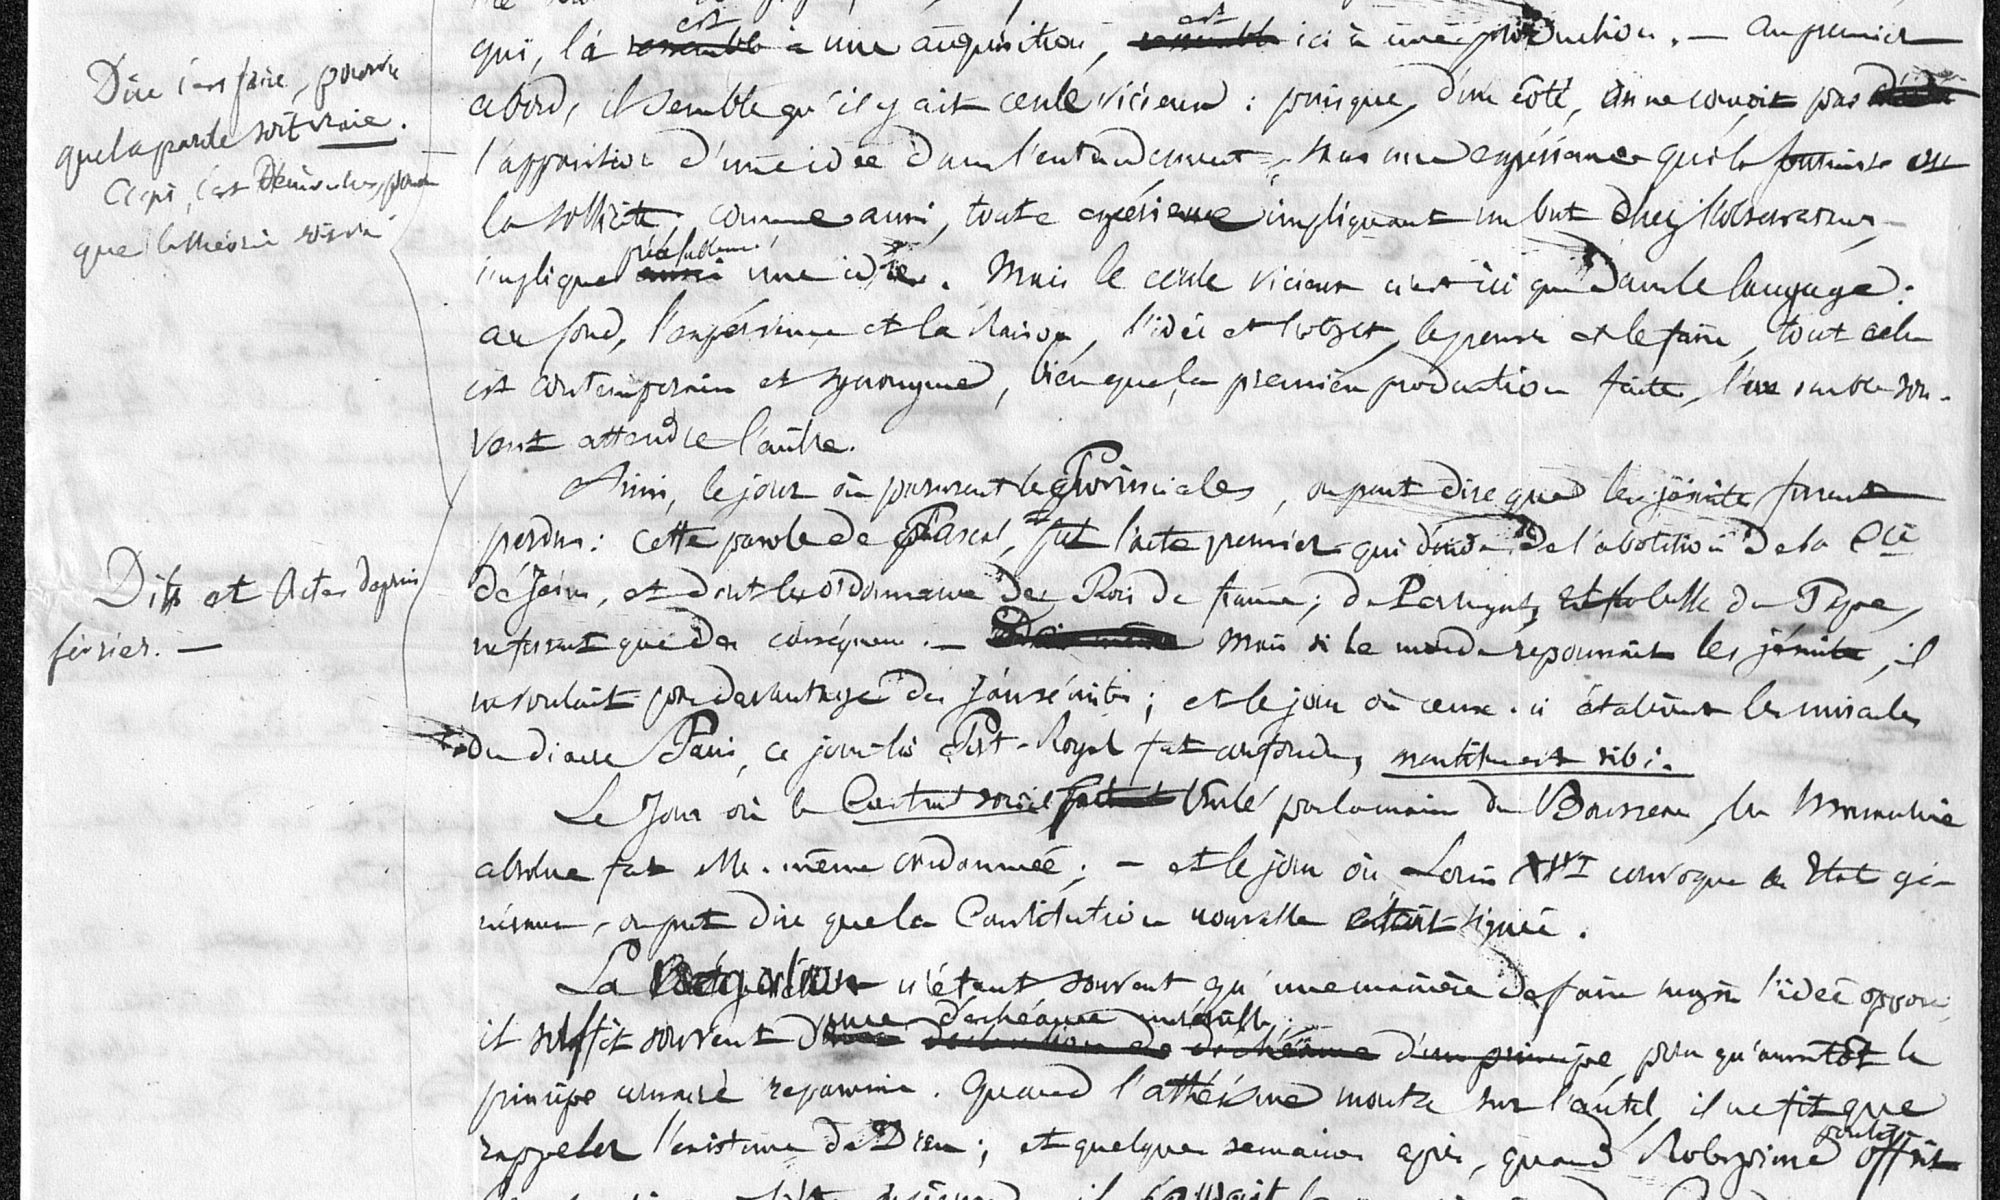 Dire c'est faire, pourvu
que la parole soit vraie.
c'est Démontrer, pourvu
que la théorie soit
Dits et Actes depuis
février. —
qui, là est à une acquisition, est ici à une production. — Au premier
abord, il semble qu'il y ait cercle vicieux : puisque, d'un côté, on ne conçoit pas
l'apparition d'une idée dans l'entendement sans une expérience qui la fournisse et
la sollicite, comme aussi, toute expérience impliquant un but chez l'observateur,
implique préalablement une idée. Mais le cercle vicieux n'est ici que dans le langage :
au fond, l'expérience et la raison, l'idée et l'objet, le penser et le faire, tout cela
est contemporain et synonyme, bien que, la première production faite, l'une semble sou-
vent attendre l'autre.
Ainsi, le jour où parurent les Provinciales, on peut dire que les jésuites furent
perdus : cette parole de Pascal, fut l'acte premier qui décida de l'abolition de la Cie
de Jésus, et dont les ordonnances des Rois de france, de Portugal, et la bulle du Pape,
ne furent que des conséquences. — Mais si le monde repoussait les jésuites, il
ne voulait pas davantage des Jansénistes ; et le jour où ceux-ci étalèrent les miracles
du diacre Pâris, ce jour-là Port-Royal fut confondu, mentita est sibi.
Le Jour où le Contrat social fut brûlé par la main du Bourreau, la Monarchie
absolue fut elle-même condamnée ; — et le jour où Louis XVI convoqua les Etats gé-
néraux, on put dire que la Constitution nouvelle était signée.
La Négation n'étant souvent qu'une manière de faire surgir l'idée opposée,
il suffit souvent d'une déchéance d'un principe, pour qu'aussitôt le
principe contraire reparaisse. Quand l'athéisme monta sur l'autel, il ne fit que
rappeler l'existence de Dieu ; et quelques semaines après, quand Robespierre